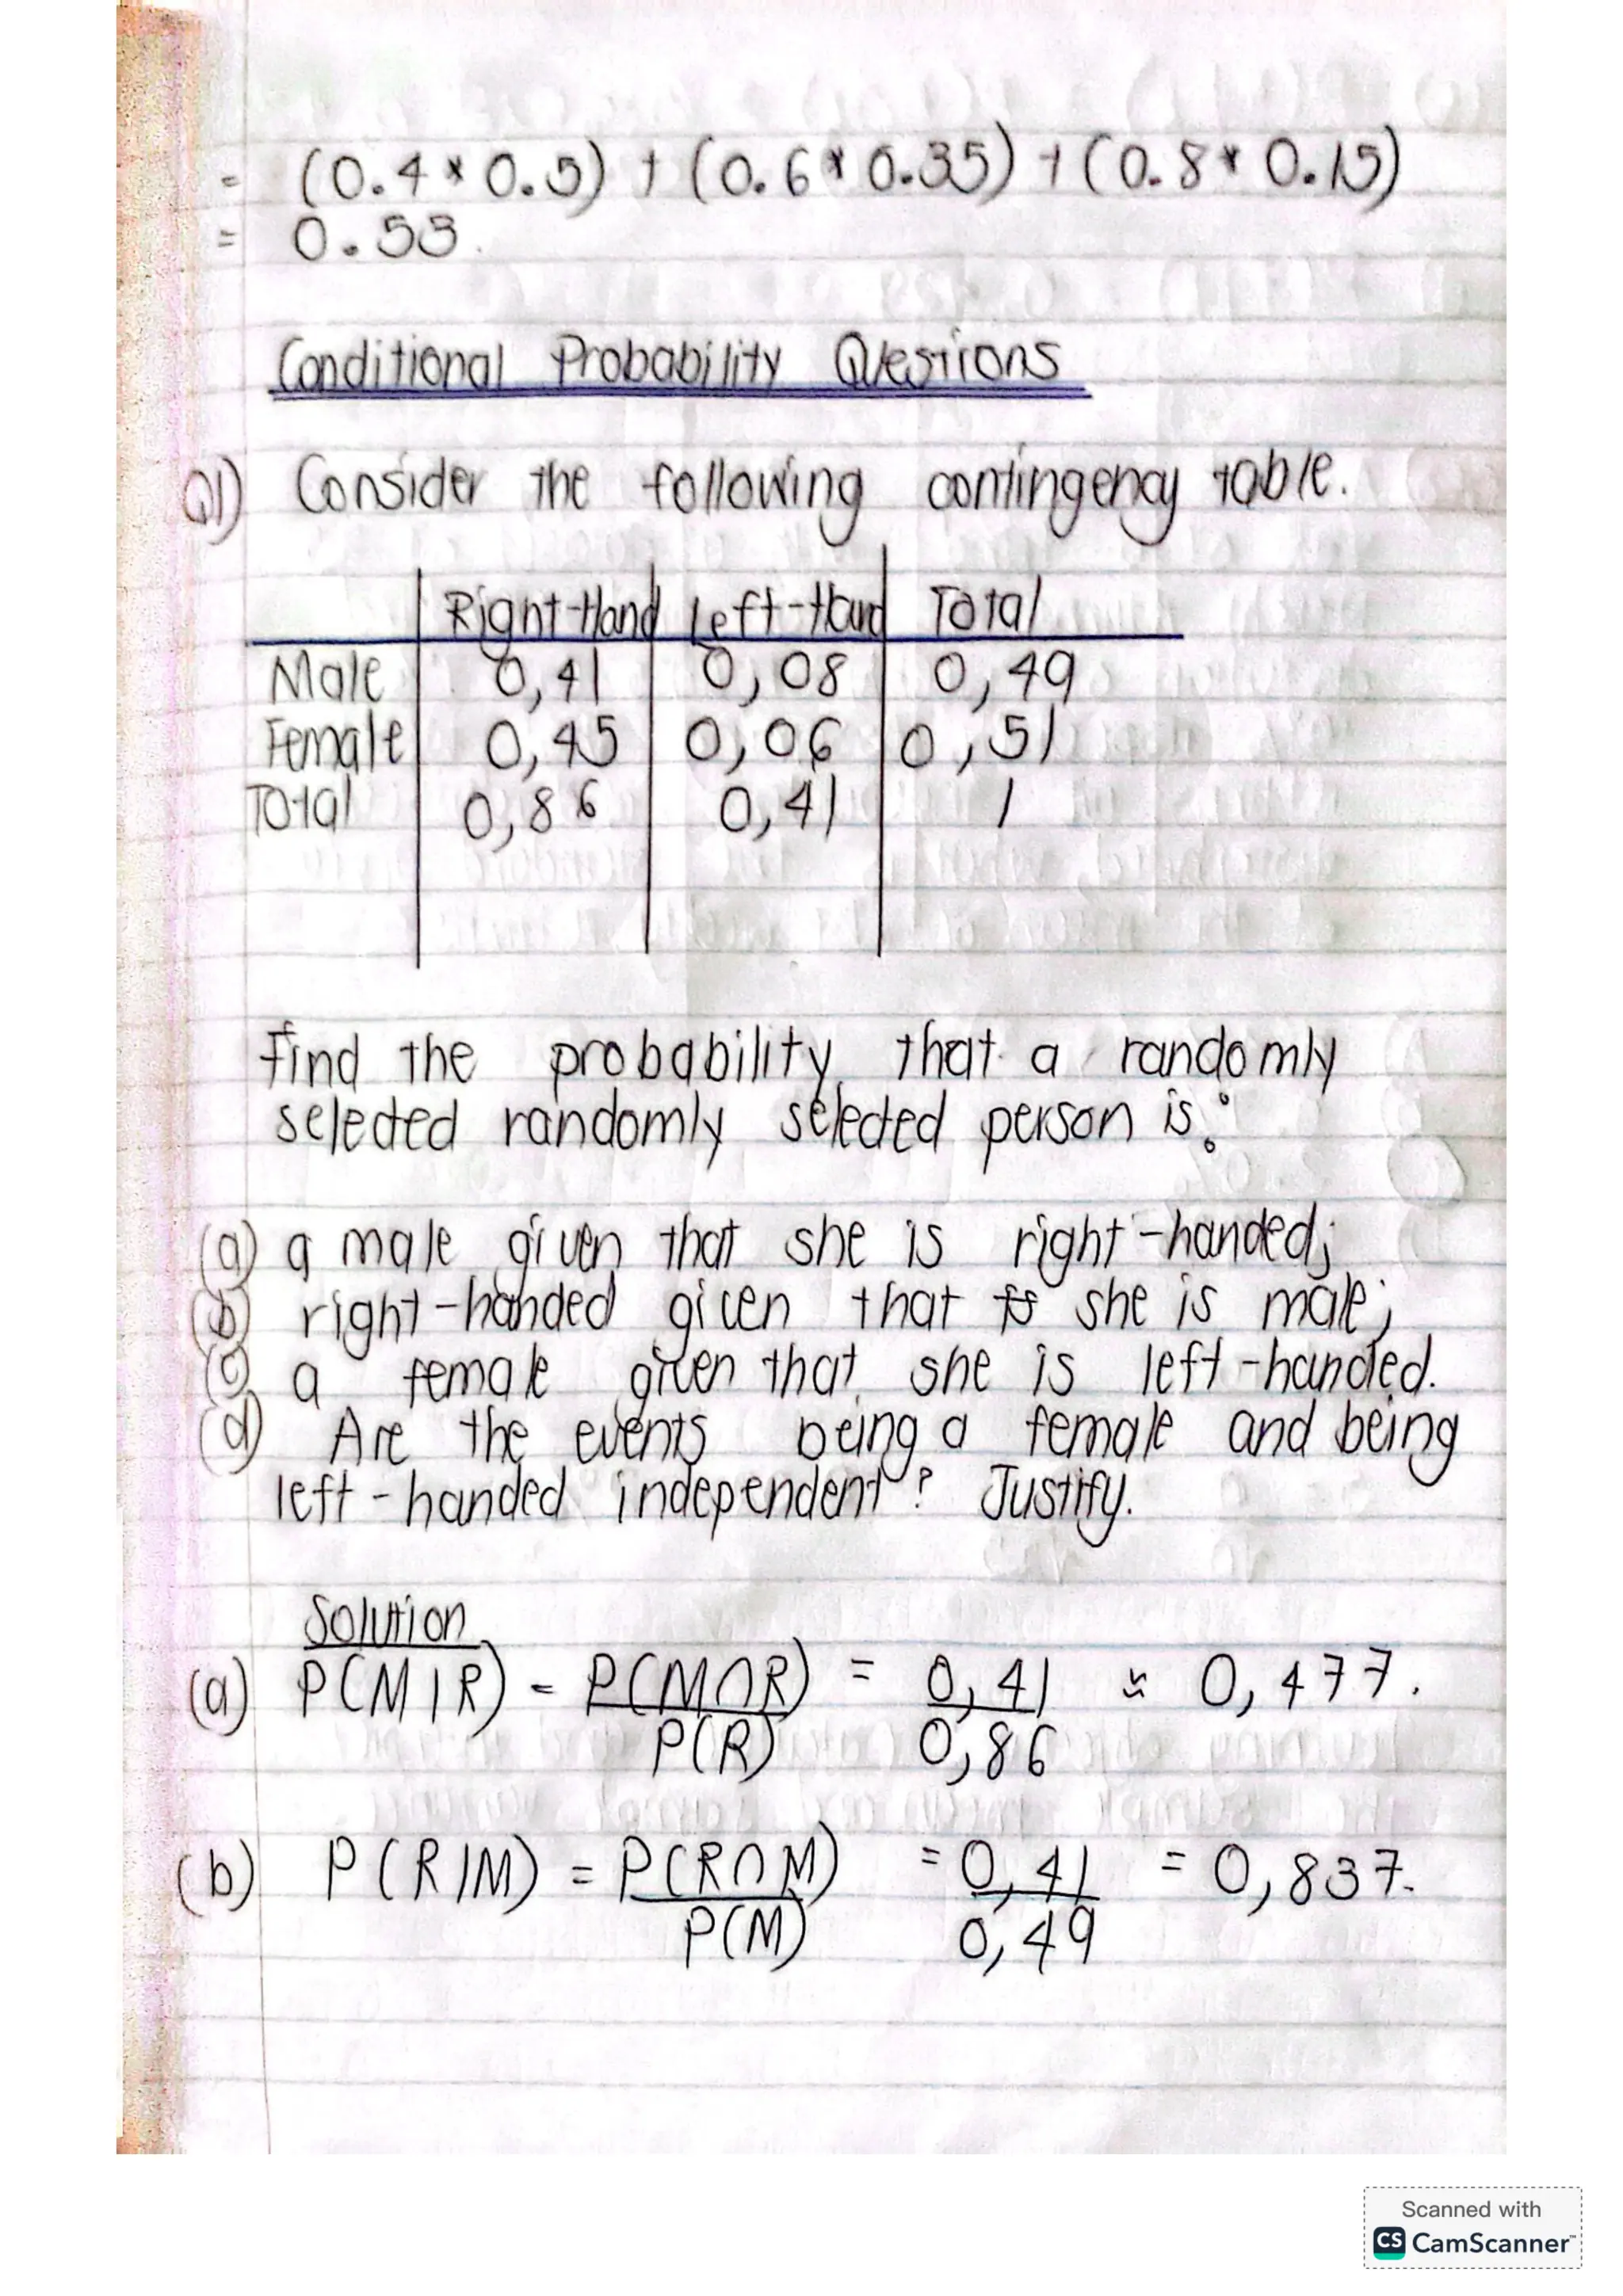 = (0.4 * 0.5) + (0.6 * 0.35) + (0.8 * 0.15)
= 0.53.
Conditional Probability Questions
Q1) Consider the following contingency table.
Right-Hand Left-Hand Total
Male 0,41 0,08 0,49
Female 0,45 0,06 0,51
Total 0,86 0,41 1
Find the probability that a randomly
selected randomly selected person is:
(a) a male given that she is right-handed;
(b) right-handed given that she is male;
(c) a female given that she is left-handed.
(d) Are the events being a female and being
left-handed independent? Justify.
Solution
(a) P(M|R) = P(M∩R) = 0,41 ≈ 0,477.
P(R) 0,86
(b) P(R|M) = P(R∩M) = 0,41 = 0,837.
P(M) 0,49
Scanned with
CS CamScanner™